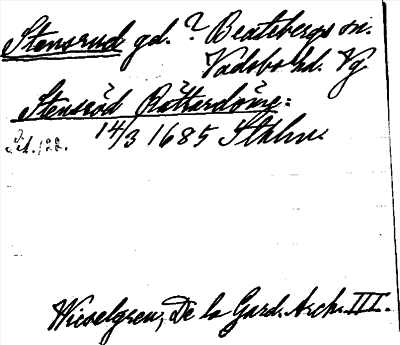 Stensrud gd. ? Beatebergs sn.
Vadsbo hd. Vg
Stensröd
14/3 1685 Sthlm.
Wieselgren, De la Gard. Arch. III.